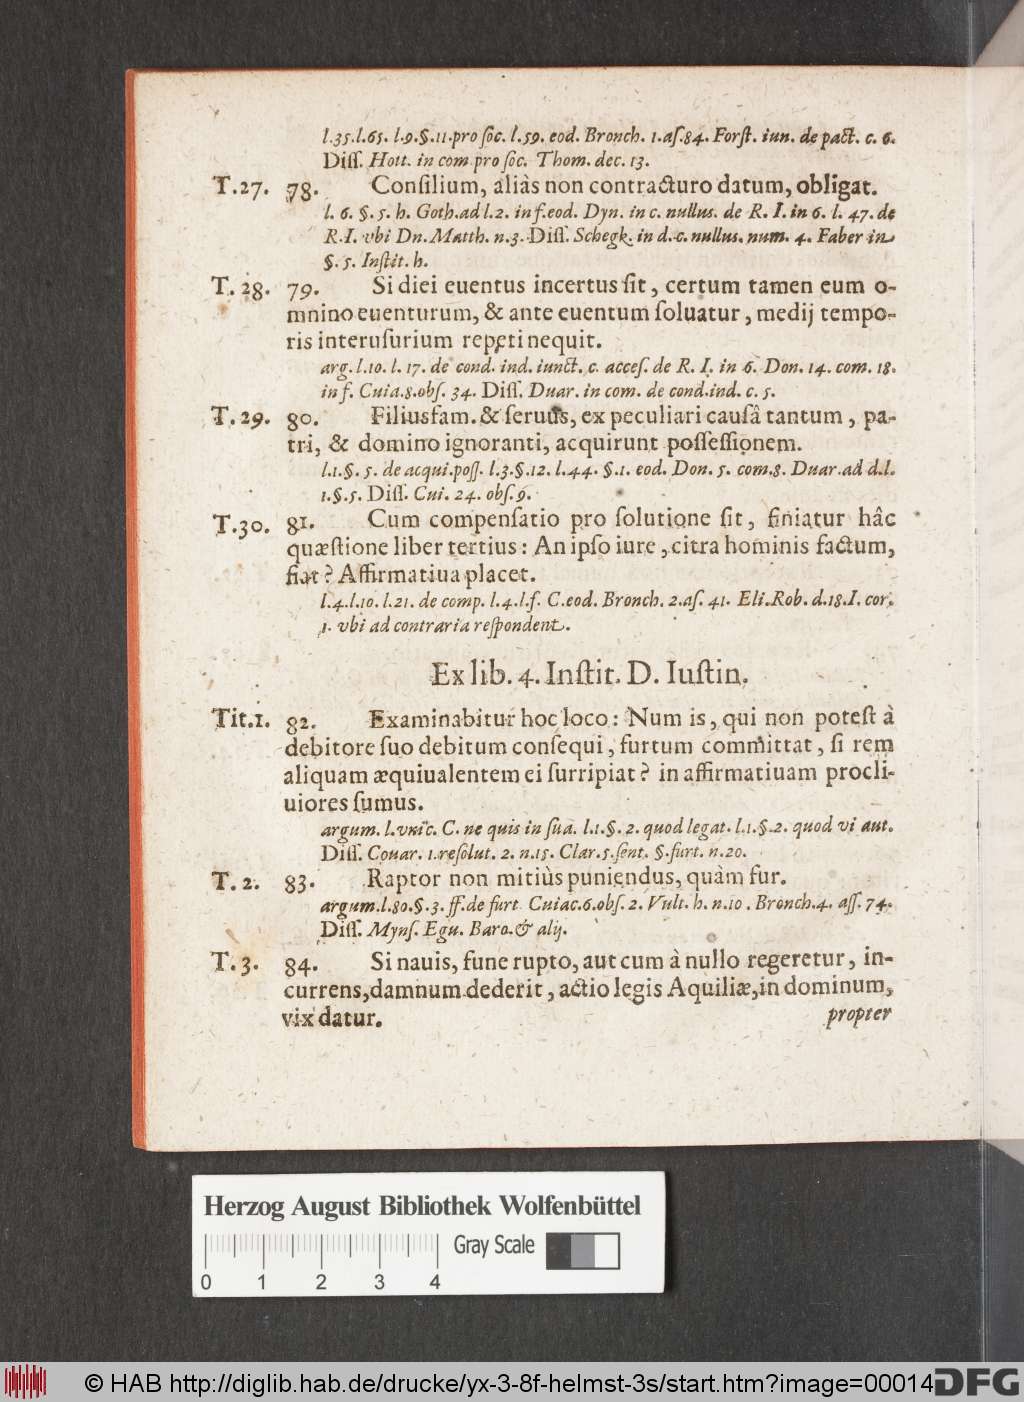 l.35.l.65. l.9.§.11.pro ſoc. l.59. eod. Bronch. 1.aſ.84. Forſt. iun. de pact. c. 6.
Diſſ. Hott. in com pro ſoc. Thom. dec. 13.
T.27. 78. Conſilium, aliàs non contracturo datum, obligat.
l. 6. §. 5. h. Goth.ad l.2. in f.eod. Dyn. in c. nullus. de R. I. in 6. l. 47. de
R.I. vbi Dn. Matth. n.3. Diſſ. Schegk. in d.c. nullus. num. 4. Faber in
§. 5. Inſtit. h.
T. 28. 79. Si diei euentus incertus ſit, certum tamen eum o-
mnino euenturum, & ante euentum ſoluatur, medij tempo-
ris interuſurium repeti nequit.
arg. l.10. l. 17. de cond. ind. iunct. c. acceſ. de R. I. in 6. Don. 14. com. 18.
in f. Cuia.8.obſ. 34. Diſſ. Duar. in com. de cond.ind. c. 5.
T. 29. 80. Filiusfam. & ſeruus, ex peculiari cauſâ tantum, pa-
tri, & domino ignoranti, acquirunt poſſeſſionem.
l.1.§. 5. de acqui.poſſ. l.3.§.12. l.44. §.1. eod. Don. 5. com.8. Duar. ad d.l.
1.§.5. Diſſ. Cui. 24. obſ.9.
T.30. 81. Cum compenſatio pro ſolutione ſit, finiatur hâc
quæſtione liber tertius: An ipſo iure, citra hominis factum,
fiat? Affirmatiua placet.
l.4.l.10. l.21. de comp. l.4.l.f. C.eod. Bronch. 2.aſ. 41. Eli. Rob. d.18.I. cor.
1. vbi ad contraria reſpondent.
Ex lib. 4. Inſtit. D. Iuſtin.
Tit.1. 82. Examinabitur hoc loco: Num is, qui non poteſt à
debitore ſuo debitum conſequi, furtum committat, ſi rem
aliquam æquiualentem ei ſurripiat? in affirmatiuam procli-
uiores ſumus.
argum. l.vnic. C. ne quis in ſua. l.1.§. 2. quod legat. l.1.§.2. quod vi aut.
Diſſ. Couar. 1.reſolut. 2. n.15. Clar.5.ſent. §.furt. n.20.
T. 2. 83. Raptor non mitiùs puniendus, quàm fur.
argum.l.80.§.3. ff.de furt Cuiac.6.obſ. 2. Vult. h. n.10. Bronch.4. aſſ. 74.
Diſſ. Mynſ. Egu. Baro. & alij.
T. 3. 84. Si nauis, fune rupto, aut cum à nullo regeretur, in-
currens, damnum dederit, actio legis Aquiliæ, in dominum,
vix datur.
propter
Herzog August Bibliothek Wolfenbüttel
Gray Scale
0 1 2 3 4
© HAB http://diglib.hab.de/drucke/yx-3-8f-helmst-3s/start.htm?image=00014
DFG